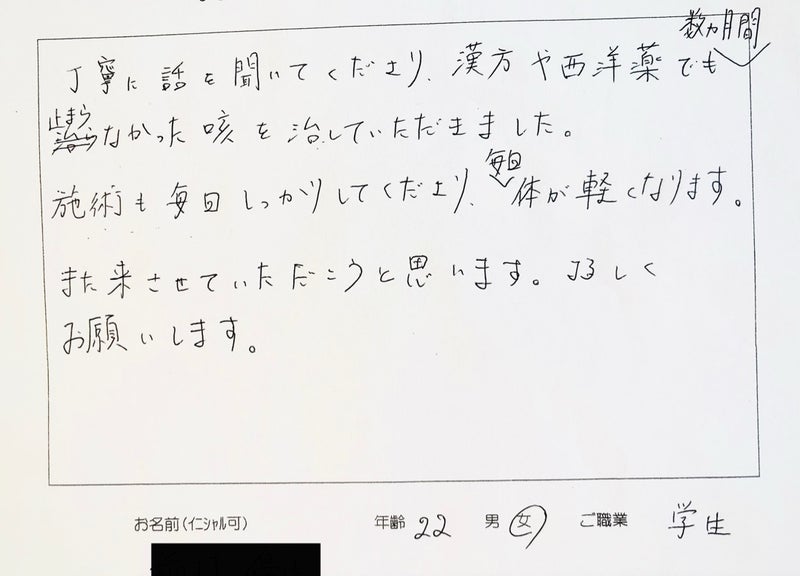 丁寧に話を聞いてくださり、漢方や西洋薬でも数ヵ月間
止まらなかった咳を治していただきました。
施術も毎回しっかりしてくださり、毎回体が軽くなります。
また来させていただこうと思います。よろしく
お願いします。
お名前(イニシャル可)
年齢 22 男 女 ご職業 学生